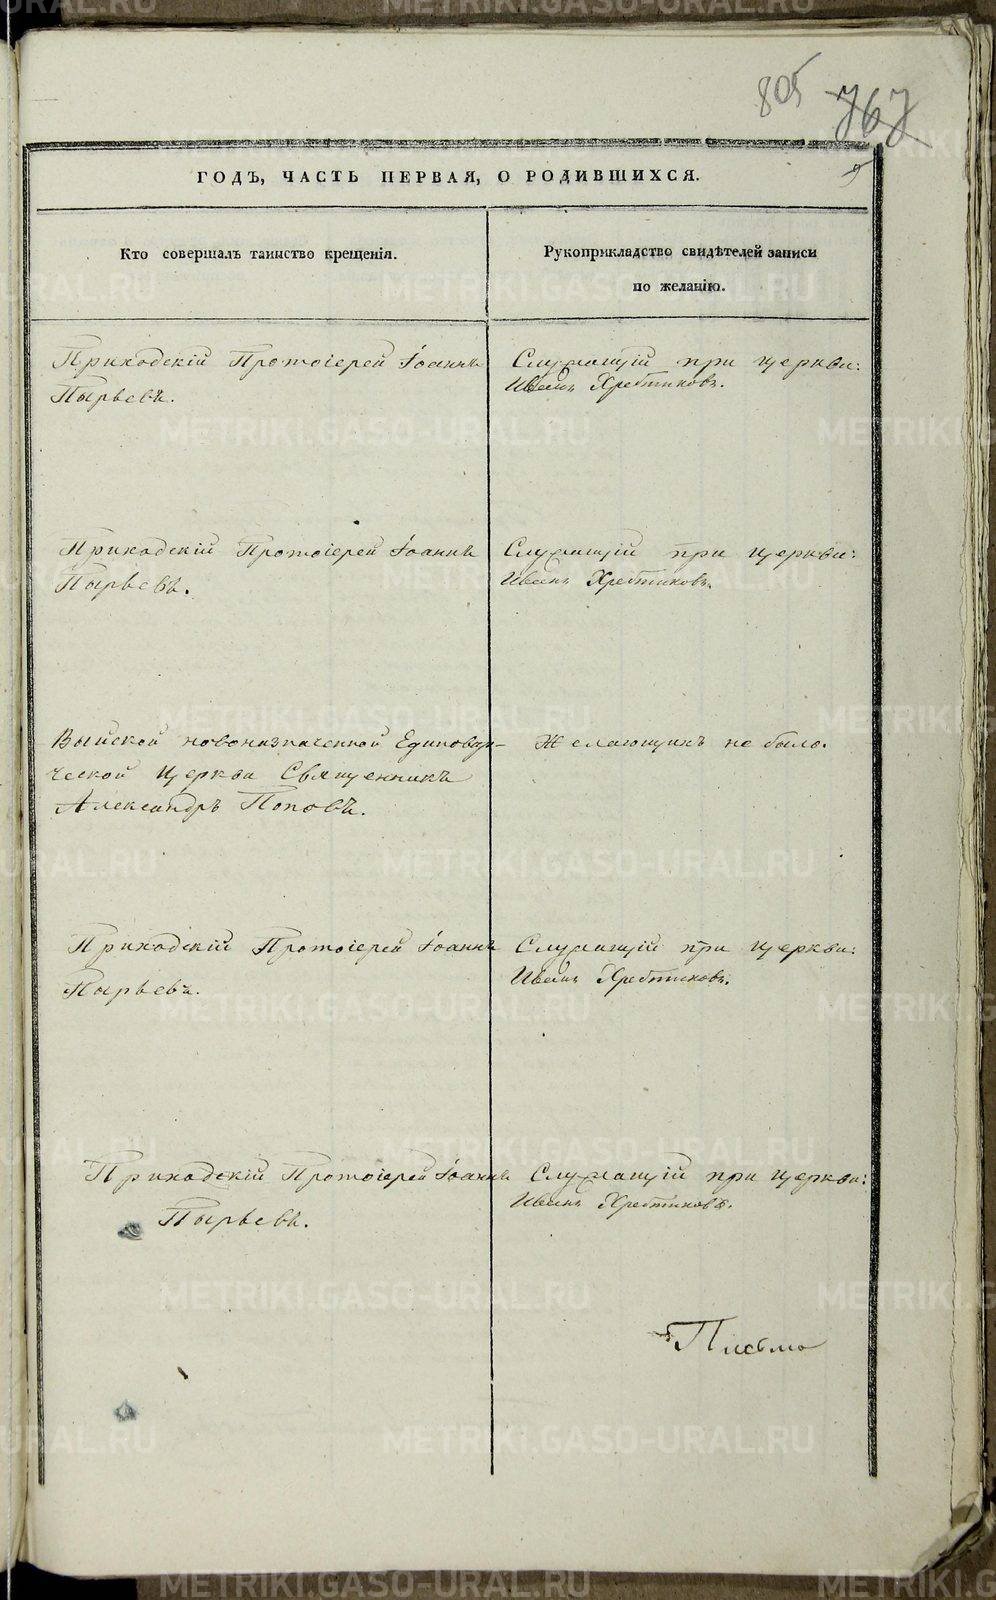 805 767
9
ГОДЪ, ЧАСТЬ ПЕРВАЯ, О РОДИВШИХСЯ.
Кто совершалъ таинство крещенія.
Рукоприкладство свидѣтелей записи
по желанію.
Приходскій Протоіерей Іоаннъ
Пырьевъ.
Служащій при церкви:
Иванъ Хребтиковъ.
Приходскій Протоіерей Іоаннъ
Пырьевъ.
Служащій при церкви:
Иванъ Хребтиковъ.
Выйской новоназначенной Единовѣр-
ческой Церкви Священникъ
Александръ Поповъ.
Желающихъ не было.
Приходскій Протоіерей Іоаннъ
Пырьевъ.
Служащій при церкви:
Иванъ Хребтиковъ.
Приходскій Протоіерей Іоаннъ
Пырьевъ.
Служащій при церкви:
Иванъ Хребтиковъ.
Письмо
METRIKI.GASO-URAL.RU